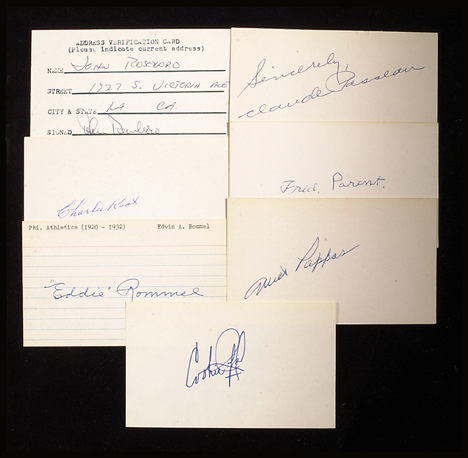 ADDRESS VERIFICATION CARD
(Please indicate current address)
NAME John Roseboro
STREET 1727 S. Victoria Ave
CITY & STATE LA CA
SIGNED John Roseboro
Sincerely,
Claude Passeau
Charlie Root
Fred. Parent.
Phi. Athletics (1920 - 1932) Edwin A. Rommel
"Eddie" Rommel
Milt Pappas
Cookie